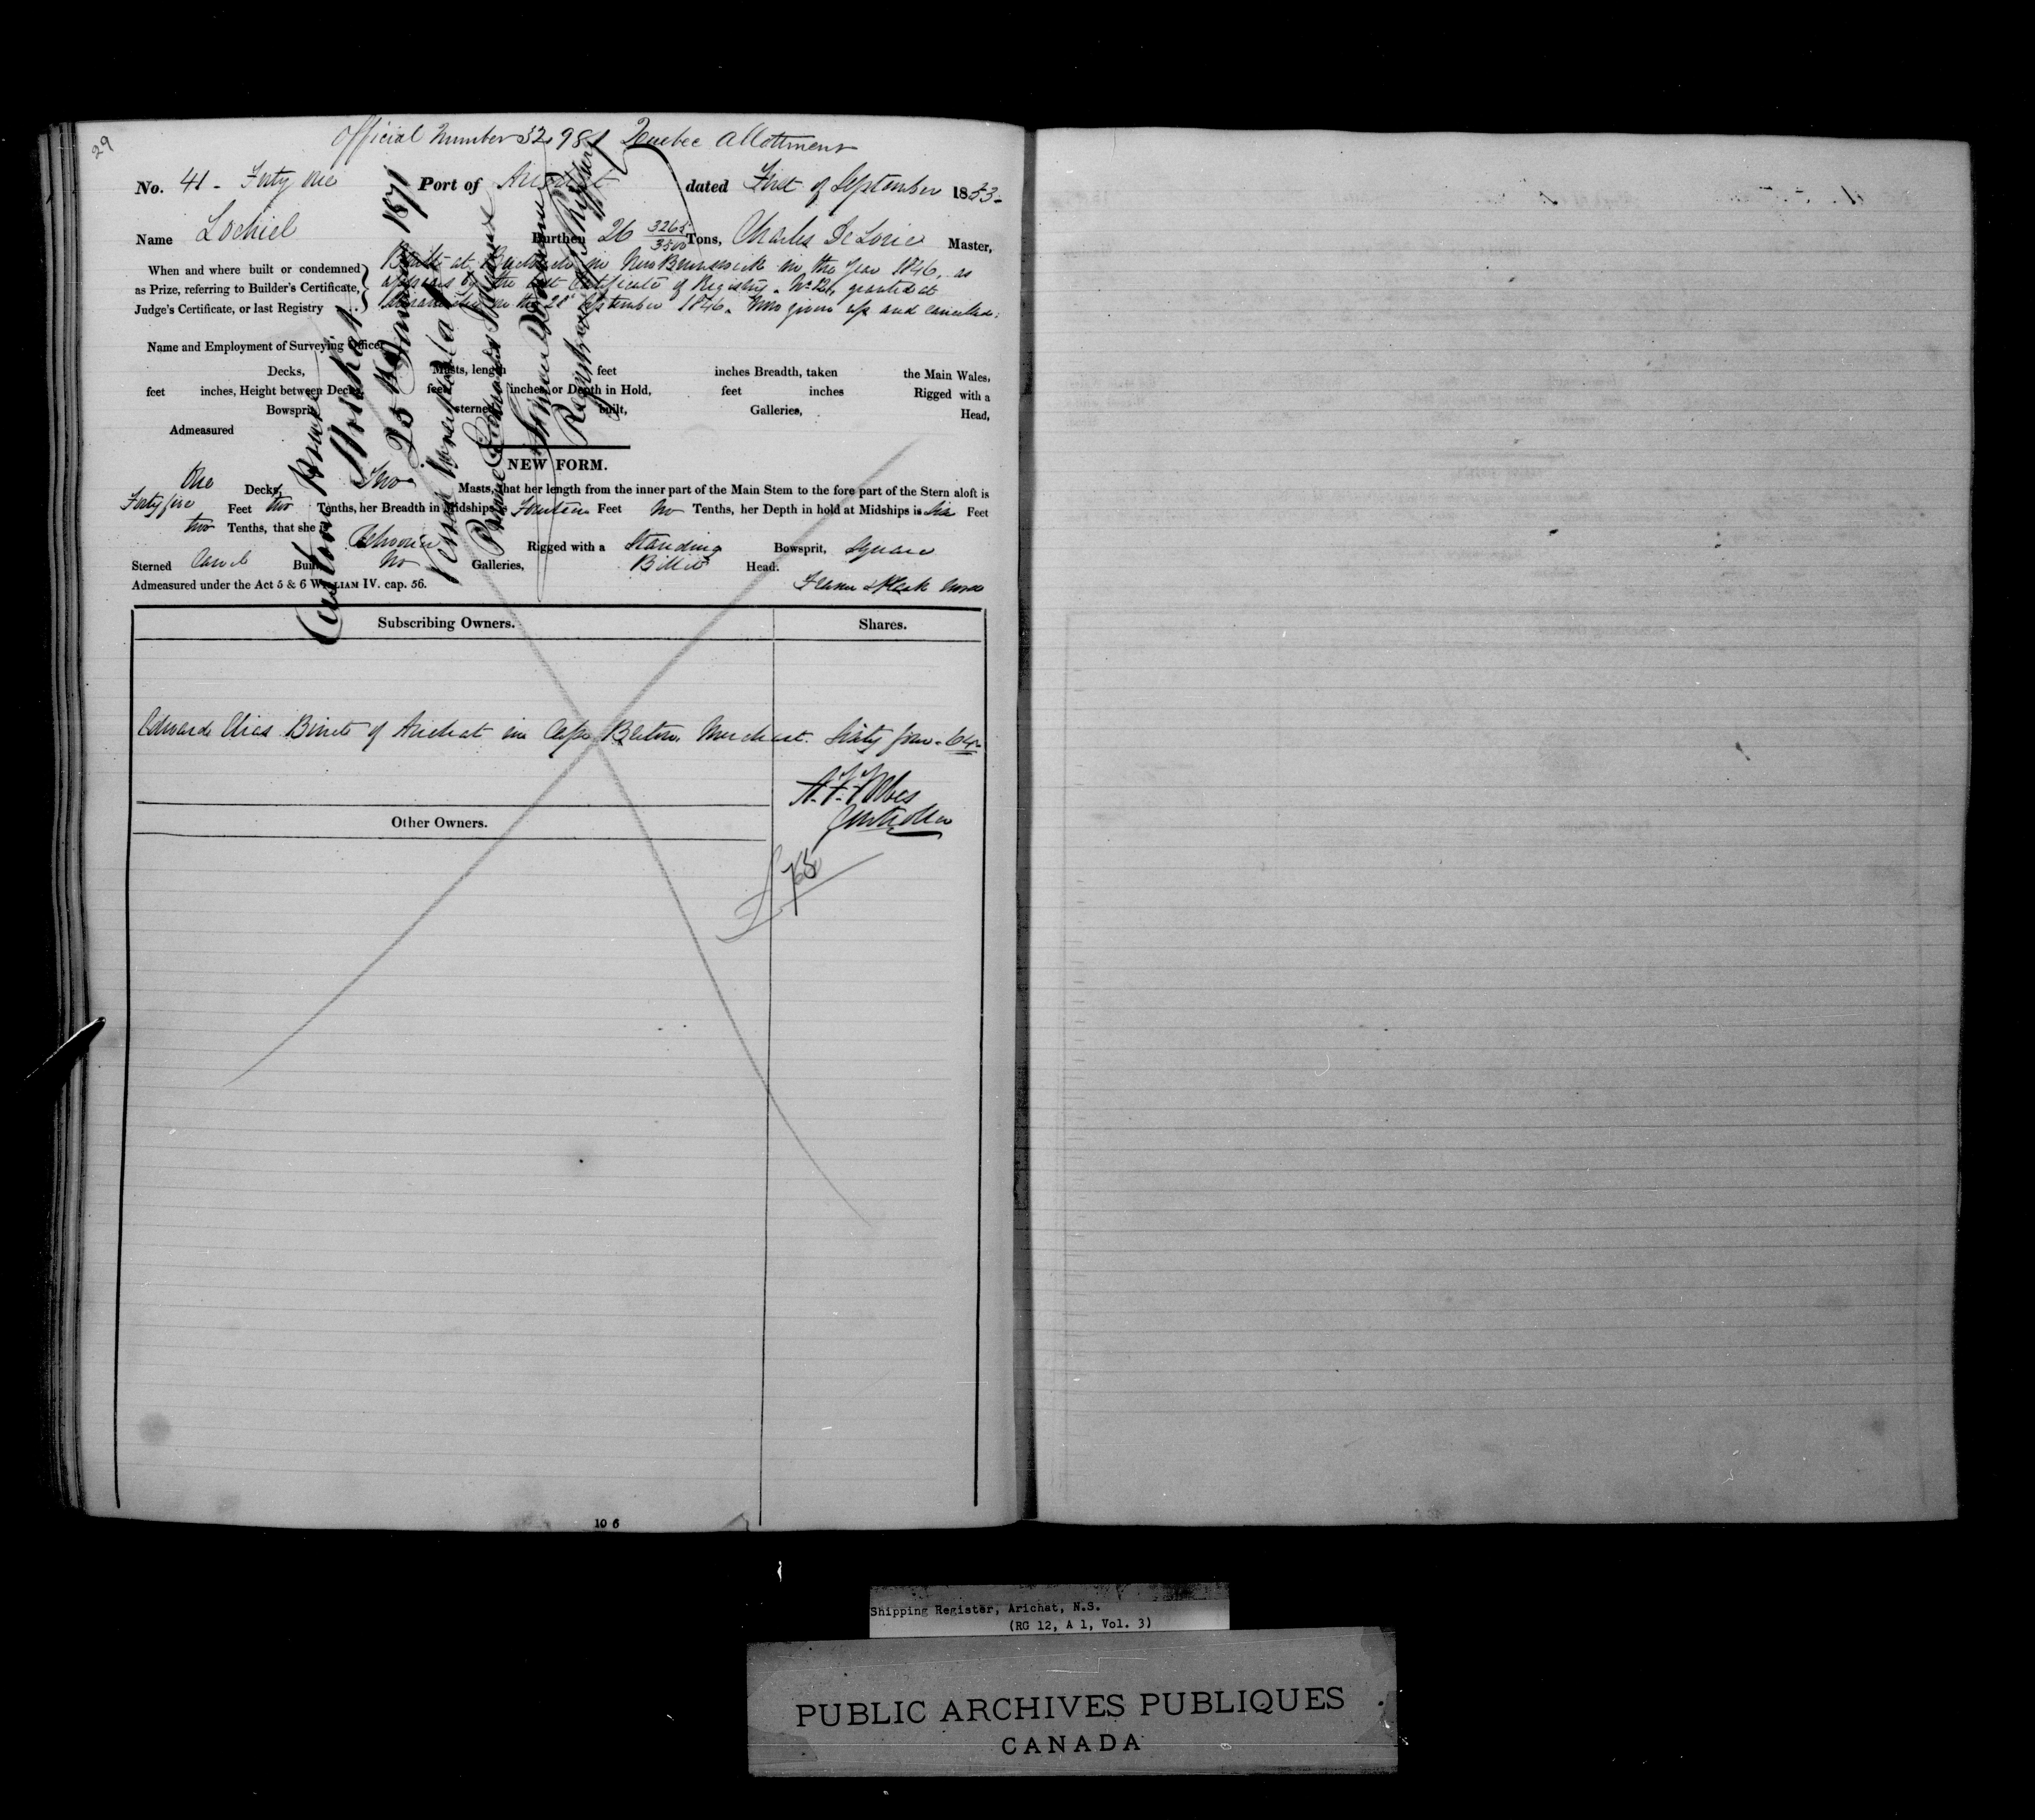 29
Official Number 32,981 Quebec Allotment
No. 41 - Forty One Port of Arichat dated First of September 1853-
Name Lochiel Burthen 26 3265/3500 Tons, Charles De Lorie Master,
When and where built or condemned as Prize, referring to Builder's Certificate, Judge's Certificate, or last Registry
Built at Buctouche in New Brunswick in the Year 1846, as
appears by the last Certificate of Registry. No granted at
Miramichi on the 28th September 1846. Now given up and cancelled.
Name and Employment of Surveying Officer
Decks, Masts, length feet inches Breadth, taken the Main Wales,
feet inches, Height between Decks feet inches, or Depth in Hold, feet inches Rigged with a
Bowsprit sterned built, Galleries, Head,
Admeasured
NEW FORM.
One Decks, Two Masts, that her length from the inner part of the Main Stem to the fore part of the Stern aloft is
Forty five Feet two Tenths, her Breadth in Midships is Fourteen Feet no Tenths, her Depth in hold at Midships is Six Feet
two Tenths, that she is Schooner Rigged with a Standing Bowsprit, Square
Sterned Carvel Built No Galleries, Billet Head.
Admeasured under the Act 5 & 6 WILLIAM IV. cap. 56. Frame & Plank Wood
Custom House
Arichat
25th January 1871
Vessel
Simon Donovan
Registrar of Shipping
Subscribing Owners. Shares.
Edward Elias Binet of Arichat in Cape Breton. Merchant. Sixty four - 64
Controller
Other Owners.
10 6
Shipping Register, Arichat, N.S.
(RG 12, A 1, Vol. 3)
PUBLIC ARCHIVES PUBLIQUES
CANADA